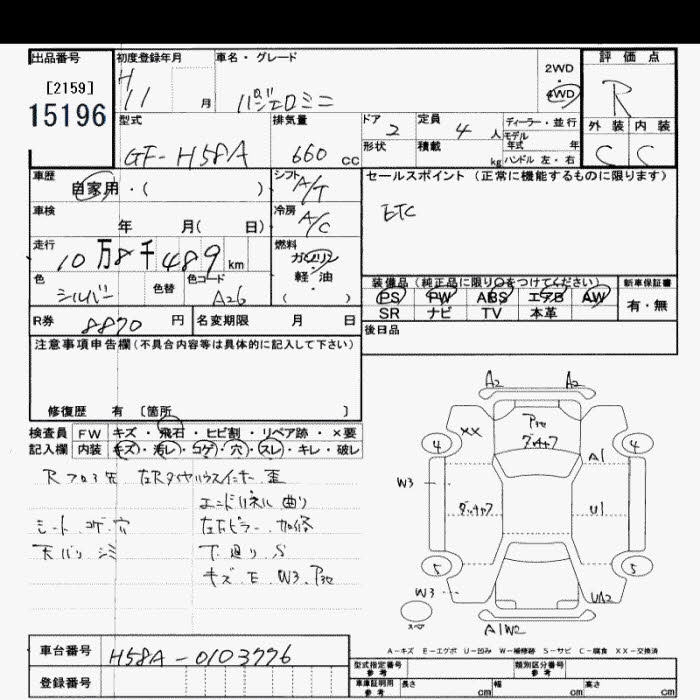 出品番号
[2159]
15196
初度登録年月
H
11 月
車名・グレード
パジェロミニ
2WD
・
4WD
評価点
R
外装 内装
C C
型式
GF-H58A
排気量
660 cc
ドア 2
形状
定員 4 人
積載 kg
ディーラー・並行
モデル
年式 年
ハンドル 左・右
車歴
自家用・( )
シフト
A/T
車検
年 月( 日)
冷房
A/C
走行
10万8千489 km
燃料
ガソリン
・
軽・油
( )
色
シルバー
色替
色コード
A26
R券 8870 円
名変期限 月 日
セールスポイント (正常に機能するものに限ります)
ETC
装備品 (純正品に限り○をつけてください)
PS PW ABS エアB AW
SR ナビ TV 本革
新車保証書
有・無
後日品
注意事項申告欄(不具合内容等は具体的に記入して下さい)
修復歴 有 〔箇所 〕
検査員 FW キズ・飛石・ヒビ割・リペア跡・×要
記入欄 内装 キズ・汚レ・コゲ・穴・スレ・キレ・破レ
エンドパネル 曲り
シート コゲ 穴
天バリ シミ
下廻り S
キズ E W3
A2 A2
XX
4 4
A1
W3
U1
5 5
W3
UA2
スペア
A1W2
A-キズ E-エクボ U-凹み W-補修跡 S-サビ C-腐食 XX-交換済
車台番号 H58A-0103776
登録番号
型式指定番号
参考
類別区分番号
参考
車庫証明用
参考
長さ cm 幅 cm 高さ cm